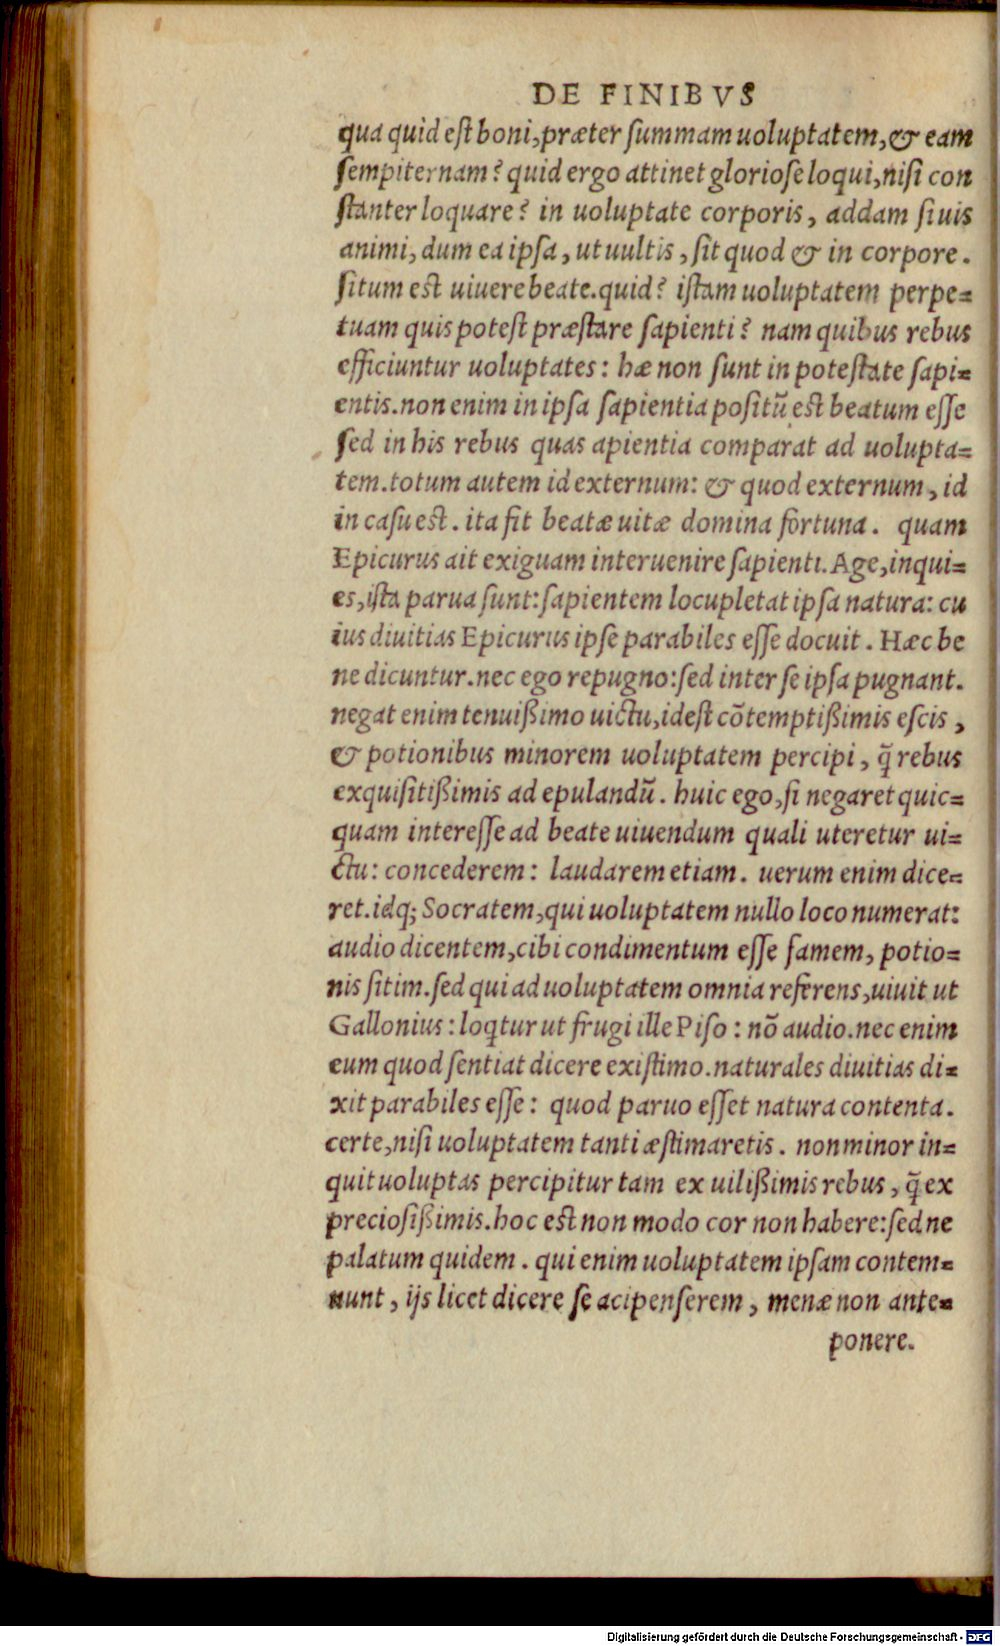 DE FINIBVS
qua quid est boni, præter summam uoluptatem, & eam
sempiternam? quid ergo attinet gloriose loqui, nisi con
stanter loquare? in uoluptate corporis, addam si uis
animi, dum ea ipsa, ut uultis, sit quod & in corpore.
situm est uiuere beate. quid? istam uoluptatem perpe=
tuam quis potest præstare sapienti? nam quibus rebus
efficiuntur uoluptates: hæ non sunt in potestate sapi=
entis. non enim in ipsa sapientia positũ est beatum esse
sed in his rebus quas apientia comparat ad uolupta=
tem. totum autem id externum: & quod externum, id
in casu est. ita fit beatæ uitæ domina fortuna. quam
Epicurus ait exiguam interuenire sapienti. Age, inqui=
es, ista parua sunt: sapientem locupletat ipsa natura: cu
ius diuitias Epicurus ipse parabiles esse docuit. Hæc be
ne dicuntur. nec ego repugno: sed inter se ipsa pugnant.
negat enim tenuißimo uictu, idest cõtemptißimis escis,
& potionibus minorem uoluptatem percipi, q̃ rebus
exquisitißimis ad epulandũ. huic ego, si negaret quic=
quam interesse ad beate uiuendum quali uteretur ui=
ctu: concederem: laudarem etiam. uerum enim dice=
ret. idq; Socratem, qui uoluptatem nullo loco numerat:
audio dicentem, cibi condimentum esse famem, potio=
nis sitim. sed qui ad uoluptatem omnia referens, uiuit ut
Gallonius: loq̃tur ut frugi ille Piso: nõ audio. nec enim
eum quod sentiat dicere existimo. naturales diuitias di=
xit parabiles esse: quod paruo esset natura contenta.
certe, nisi uoluptatem tanti æstimaretis. non minor in=
quit uoluptas percipitur tam ex uilißimis rebus, q̃ ex
preciosißimis. hoc est non modo cor non habere: sed ne
palatum quidem. qui enim uoluptatem ipsam contem=
nunt, ijs licet dicere se acipenserem, menæ non ante=
ponere.
Digitalisierung gefördert durch die Deutsche Forschungsgemeinschaft - DFG